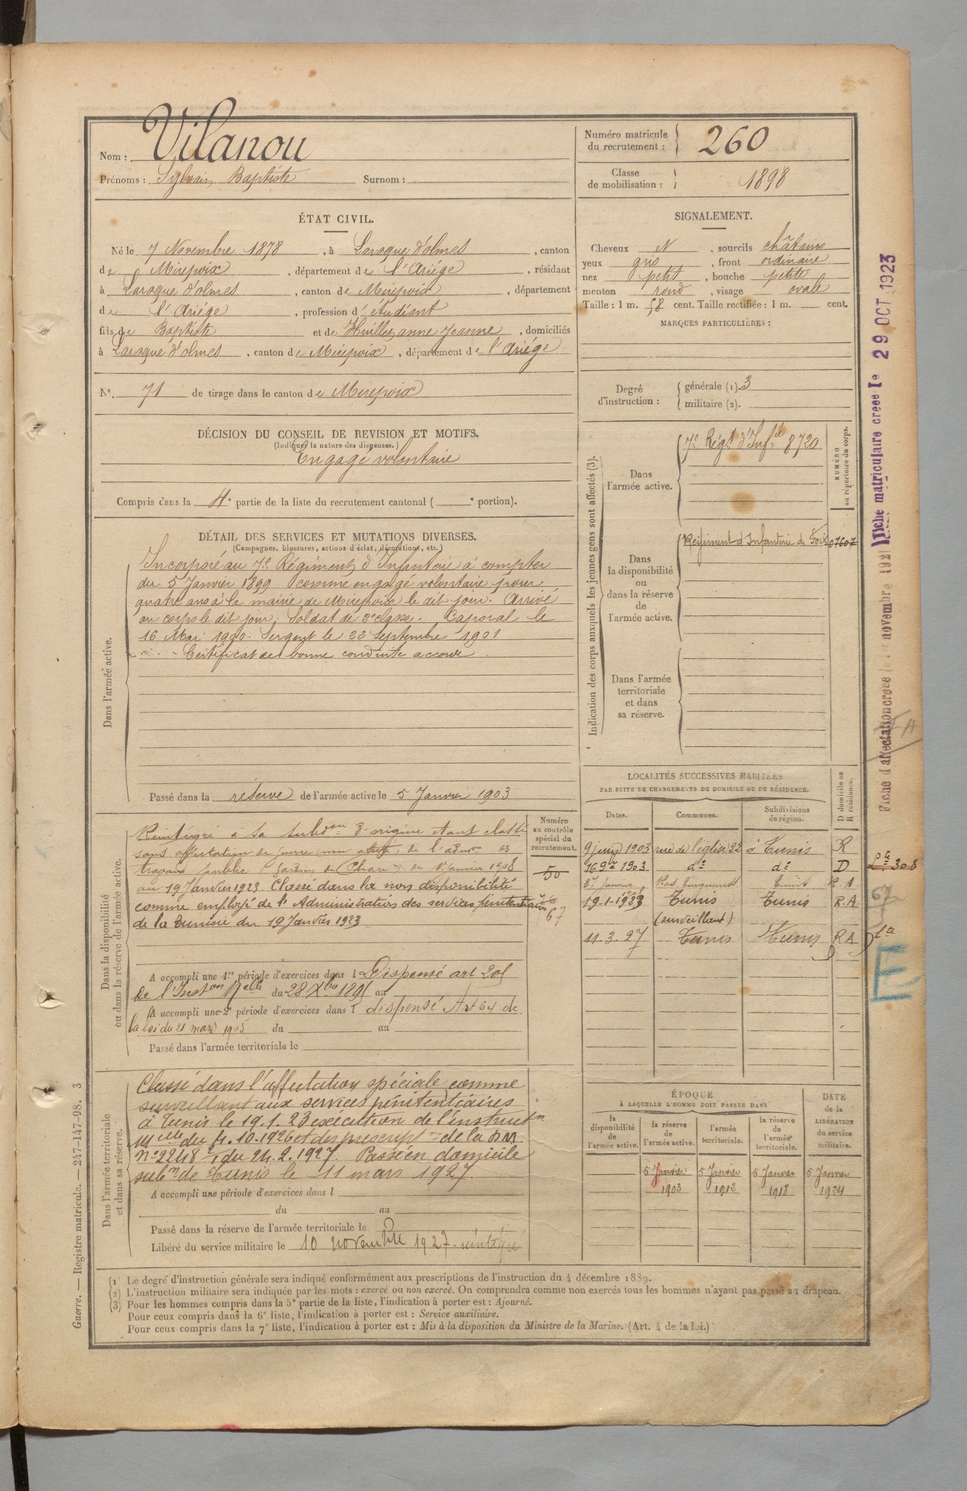 Nom : Vilanou
Prénoms : Sylvain Baptiste Surnom :
Numéro matricule du recrutement : 260
Classe de mobilisation : 1898
ÉTAT CIVIL.
Né le 7 Novembre 1878, à Laroque d'olmes, canton
de Mirepoix, département de l'Ariége, résidant
à Laroque d'olmes, canton de Mirepoix, département
de l'Ariége, profession d'étudiant
fils de Baptiste et de Huillet anne Jeanne, domiciliés
à Laroque d'olmes, canton de Mirepoix, département de l'Ariége
N° 71 de tirage dans le canton de Mirepoix
SIGNALEMENT.
Cheveux N, sourcils châtains
yeux gris, front ordinaire
nez petit, bouche petite
menton rond, visage ovale
Taille : 1 m. 58 cent. Taille rectifiée : 1 m. cent.
MARQUES PARTICULIÈRES :
Degré d'instruction : générale (1). 3
militaire (2).
DÉCISION DU CONSEIL DE REVISION ET MOTIFS.
(Indiquer la nature des dispenses.)
Engagé volontaire
Compris dans la 4e partie de la liste du recrutement cantonal ( e portion).
DÉTAIL DES SERVICES ET MUTATIONS DIVERSES.
(Campagnes, blessures, actions d'éclat, décorations, etc.)
Dans l'armée active.
Incorporé au 7e Régiment d'Infanterie à compter
du 5 Janvier 1899 comme engagé volontaire pour
quatre ans à la mairie de Mirepoix le dit jour. Arrivé
au corps le dit jour, Soldat de 2e classe. Caporal le
16 Mai 1900 Sergent le 22 Septembre 1901
Certificat de bonne conduite accordé
Passé dans la réserve de l'armée active le 5 Janvier 1903
Indication des corps auxquels les jeunes gens sont affectés (3).
NUMÉRO au répertoire du corps.
Dans l'armée active. 7e Régt d'Infie 8720
Dans la disponibilité ou dans la réserve de l'armée active. Régiment d'Infanterie de Foix 07607
Dans l'armée territoriale et dans sa réserve.
LOCALITÉS SUCCESSIVES HABITÉES
PAR SUITE DE CHANGEMENTS DE DOMICILE OU DE RÉSIDENCE.
Dates. Communes. Subdivisions de région. D domicile ou R résidence.
9 juin 1903 rue de l'église 22 à Tunis R
16 9bre 1903 do do D
19-1-1923 Tunis Tunis R.A
(surveillant)
11-3-27 Tunis Tunis RA
Numéro au contrôle spécial du recrutement.
50
67
Dans la disponibilité ou dans la réserve de l'armée active.
Réintégré à sa subdon d'origine étant classé
au 19 Janvier 1923. Classé dans la non disponibilité
comme employé de l'Administration des services pénitentiaires
de la Tunisie du 19 Janvier 1923
A accompli une 1re période d'exercices dans l Dispensé art 208
de l'Inston Melle du 28 Xbre 1895 au
A accompli une 2e période d'exercices dans l dispensé Art 64 de
la loi du 21 mars 1905 du au
Passé dans l'armée territoriale le
Dans l'armée territoriale et dans sa réserve.
Classé dans l'affectation spéciale comme
surveillant aux services pénitentiaires
à Tunis le 19.1.23 exécution de l'instruction
Mlle du 1.10.1926 et des prescript de la DM
No 2248 du 24.2.1927 Passé en domicile
subon de Tunis le 11 mars 1927
A accompli une période d'exercices dans l
du au
Passé dans la réserve de l'armée territoriale le
Libéré du service militaire le 10 novembre 1927
ÉPOQUE
À LAQUELLE L'HOMME DOIT PASSER DANS
la disponibilité de l'armée active. la réserve de l'armée active. l'armée territoriale. la réserve de l'armée territoriale. DATE de la LIBÉRATION du service militaire.
5 Janvier 1903 5 Janvier 1913 5 Janvier 1918 5 Janvier 1924
(1 Le degré d'instruction générale sera indiqué conformément aux prescriptions de l'instruction du 4 décembre 1889.
(2) L'instruction militaire sera indiquée par les mots : exercé ou non exercé. On comprendra comme non exercés tous les hommes n'ayant pas passé au drapeau.
(3) Pour les hommes compris dans la 5e partie de la liste, l'indication à porter est : Ajourné.
Pour ceux compris dans la 6e liste, l'indication à porter est : Service auxiliaire.
Pour ceux compris dans la 7e liste, l'indication à porter est : Mis à la disposition du Ministre de la Marine. (Art. 4 de la loi.)
Guerre. — Registre matricule. — 247-147-98. 3
Fiche matriculaire créée le 29 OCT 1923
Fiche d'affectation créée le 1er novembre 1921
67
E